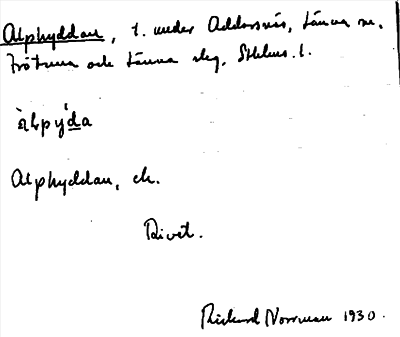 Alphyddan, t. under Addarsnäs, Länna sn.
Frötuna och Länna skg, Sthlms l.
àlpý̀da
Alphyddan, ek.
Rivet.
Rickard Norrman 1930.